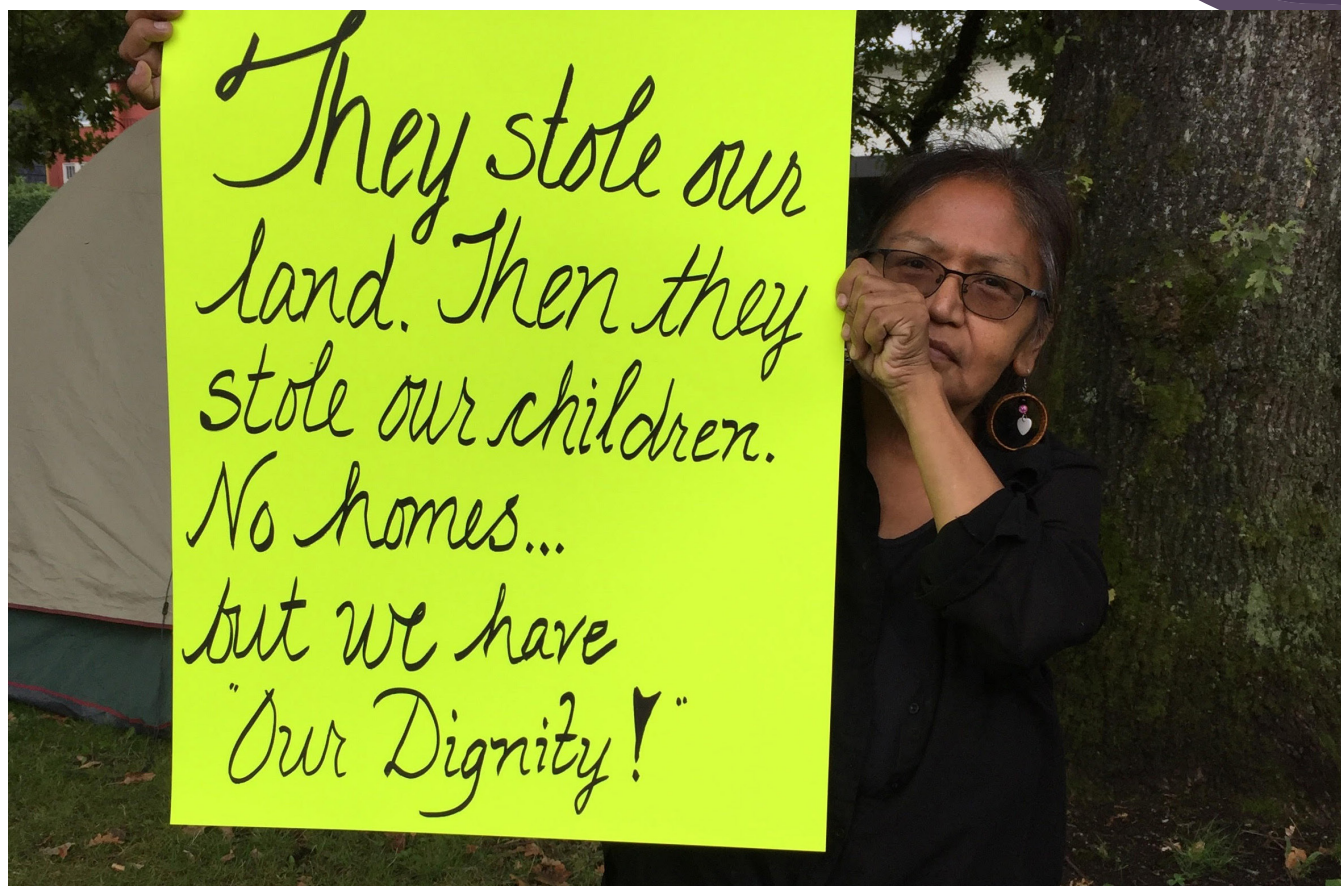 They stole our
land. Then they
stole our children.
No homes...
but we have
"Our Dignity!"